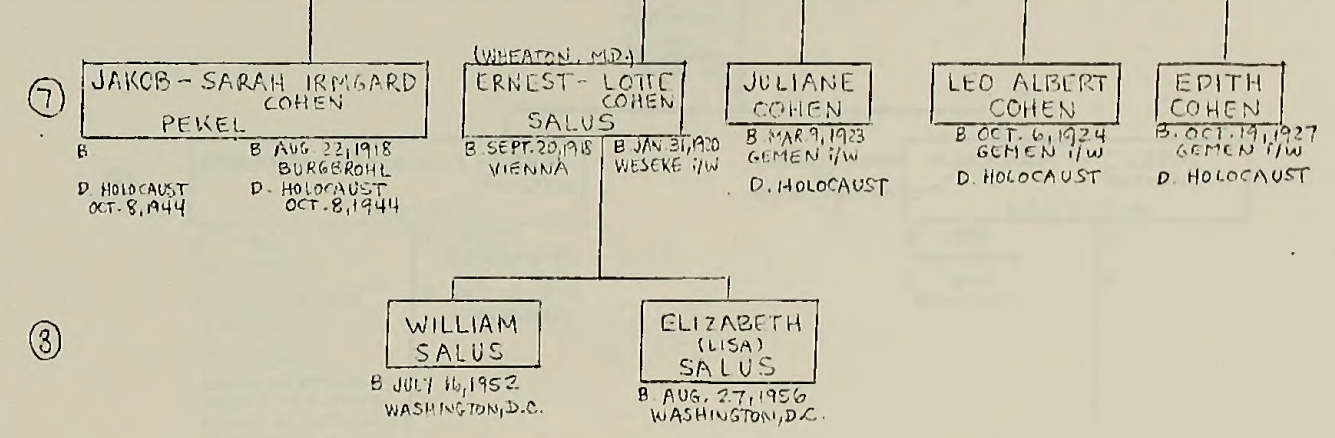 (WHEATON, M.D.)
⑦
JAKOB - SARAH IRMGARD
COHEN
PEKEL
B.
B AUG. 22, 1918
BURGBROHL
D. HOLOCAUST
OCT. 8, 1944
D. HOLOCAUST
OCT. 8, 1944
ERNEST - LOTTE
COHEN
SALUS
B. SEPT. 20, 1918
VIENNA
B JAN. 31, 1920
WESEKE i/W
JULIANE
COHEN
B. MAR. 9, 1923
GEMEN i/W
D. HOLOCAUST
LEO ALBERT
COHEN
B OCT. 6, 1924
GEMEN i/W
D. HOLOCAUST
EDITH
COHEN
B. OCT. 19, 1927
GEMEN i/W
D. HOLOCAUST
⑧
WILLIAM
SALUS
B JULY 16, 1952
WASHINGTON, D.C.
ELIZABETH
(LISA)
SALUS
B. AUG. 27, 1956
WASHINGTON, D.C.